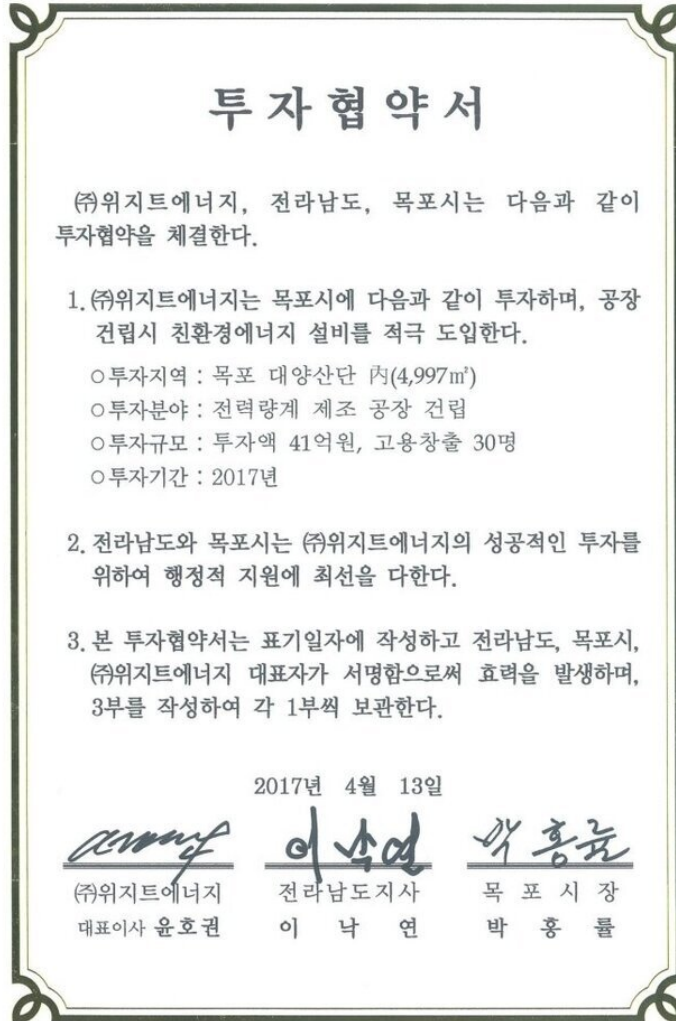 투자협약서
㈜위지트에너지, 전라남도, 목포시는 다음과 같이
투자협약을 체결한다.
1. ㈜위지트에너지는 목포시에 다음과 같이 투자하며, 공장
건립시 친환경에너지 설비를 적극 도입한다.
○투자지역 : 목포 대양산단 內(4,997㎡)
○투자분야 : 전력량계 제조 공장 건립
○투자규모 : 투자액 41억원, 고용창출 30명
○투자기간 : 2017년
2. 전라남도와 목포시는 ㈜위지트에너지의 성공적인 투자를
위하여 행정적 지원에 최선을 다한다.
3. 본 투자협약서는 표기일자에 작성하고 전라남도, 목포시,
㈜위지트에너지 대표자가 서명함으로써 효력을 발생하며,
3부를 작성하여 각 1부씩 보관한다.
2017년 4월 13일
이낙연 박홍률
㈜위지트에너지 전라남도지사 목포시장
대표이사 윤호권 이 낙 연 박 홍 률